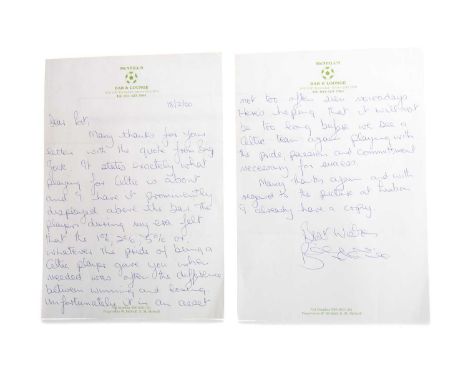 McNEILL'S
BAR & LOUNGE
18/2/00
Dear Pat,
Many thanks for your
letter with the quote from Big
Jock. It states exactly what
playing for Celtic is about
and I have it prominently
displayed above the bar. The
players during my era felt
that the 1%, 2%, 5% or
whatever the pride of being a
Celtic player gave you when
needed was often the difference
between winning and losing
Unfortunately it is an asset
McNEILL'S
BAR & LOUNGE
not too often seen nowadays
Here's hoping that it will not
be too long before we see a
Celtic team again playing with
the pride passion and commitment
necessary for success.
Many thanks again and with
regard to the picture of Lisbon
I already have a copy.
Best Wishes